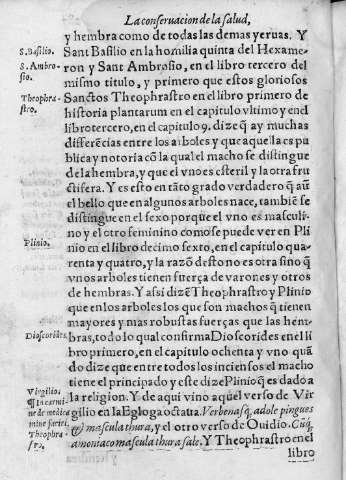 La conseruacion de la salud,
y hembra como de todas las demas yeruas. Y
S. Basilio.
Sant Basilio en la homilia quinta del Hexame-
S. Ambro-
sio.
ron y Sant Ambrosio, en el libro tercero del
mismo titulo, y primero que estos gloriosos
Theophra-
stro.
Sanctos Theophrastro en el libro primero de
historia plantarum en el capitulo vltimo y en el
libro tercero, en el capitulo 9. dize q̃ ay muchas
differẽcias entre los arboles y que aquella es pu
blica y notoria cõ la qual el macho se distingue
de la hembra, y que el vno es esteril y la otra fru
ctifera. Y es esto en tãto grado verdadero q̃ aũ
el bello que en algunos arboles nace, tambiẽ se
distingue en el sexo porque el vno es masculi-
no y el otro feminino como se puede ver en Pli
Plinio.
nio en el libro decimo sexto, en el capitulo qua-
renta y quatro, y la razõ desto no es otra sino q̃
vnos arboles tienen fuerça de varones y otros
de hembras. Y assi dizẽ Theophrastro y Plinio
que en los arboles los que son machos q̃ tienen
mayores y mas robustas fuerças que las hem-
Dioscorides.
bras, todo lo qual confirma Dioscorides en el li
bro primero, en el capitulo ochenta y vno quã
do dize que entre todos los inciensos el macho
tiene el principado y este dize Plinio q̃ es dado a
Virgilio.
la religion. Y de aqui vino aquel verso de Vir
¶ In carmi
ne de medica
mine faciei.
gilio en la Egloga octaua. Verbenasq, adole pingues
& mascula thura, y el otro verso de Ouidio. Cũq,
Theophra-
stro.
amoniaco mascula thura sale. Y Theophrastro en el
libro